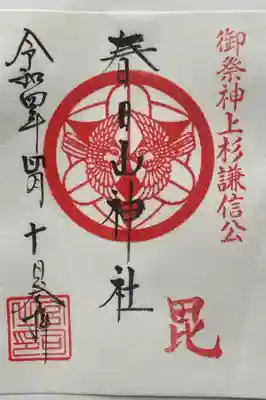 御祭神上杉謙信公
毘
春日山神社
令和四年四月十日